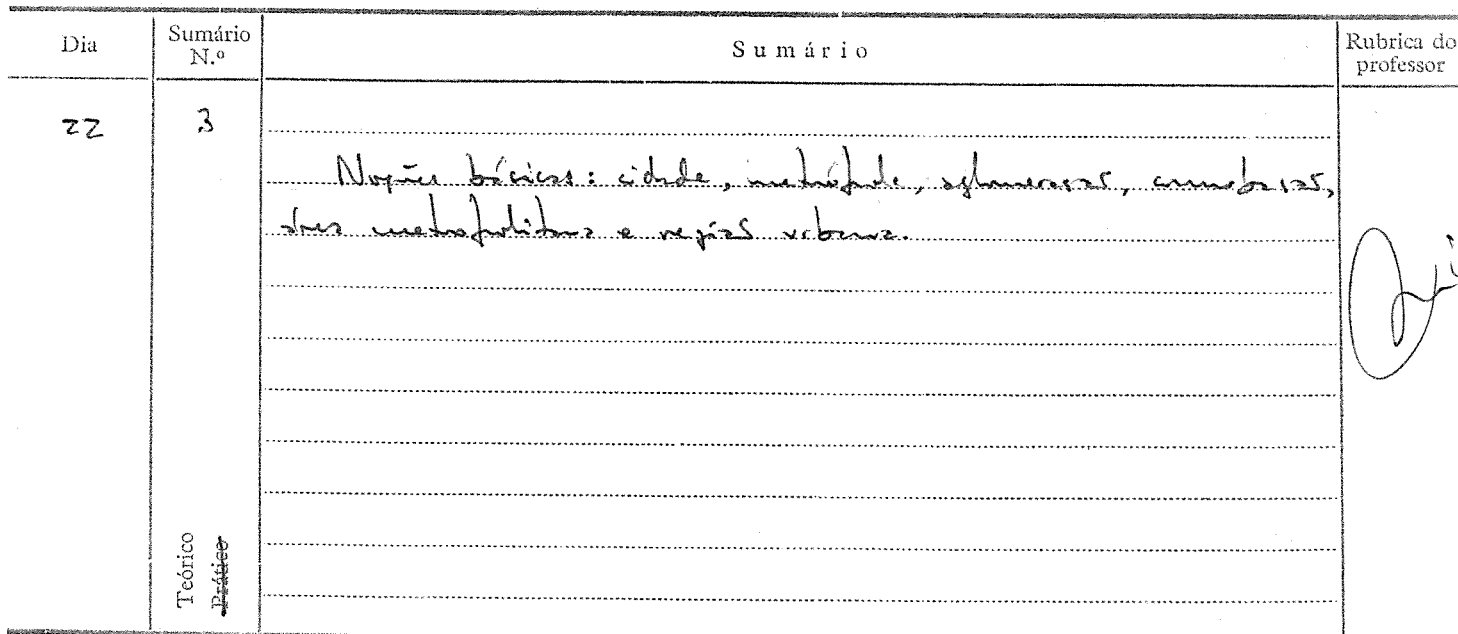 Dia
Sumário N.º
Sumário
Rubrica do professor
22
3
Noções básicas: cidade, metrópole, aglomeração, conurbação,
área metropolitana e região urbana.
Teórico
Prático